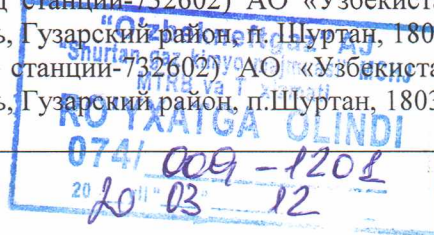 станции-732602) АО «Узбекиста
Гузарский район, п. Шуртан, 180
станции-732602) АО «Узбекиста
Гузарский район, п.Шуртан, 1803
"O'zbekneftgaz" AJ
"Shurtan gaz kimyo majmuasi" MCHJ
MTRB va T xizmati
RO'YXATGA OLINDI
074/ 009-1201
20 03 12